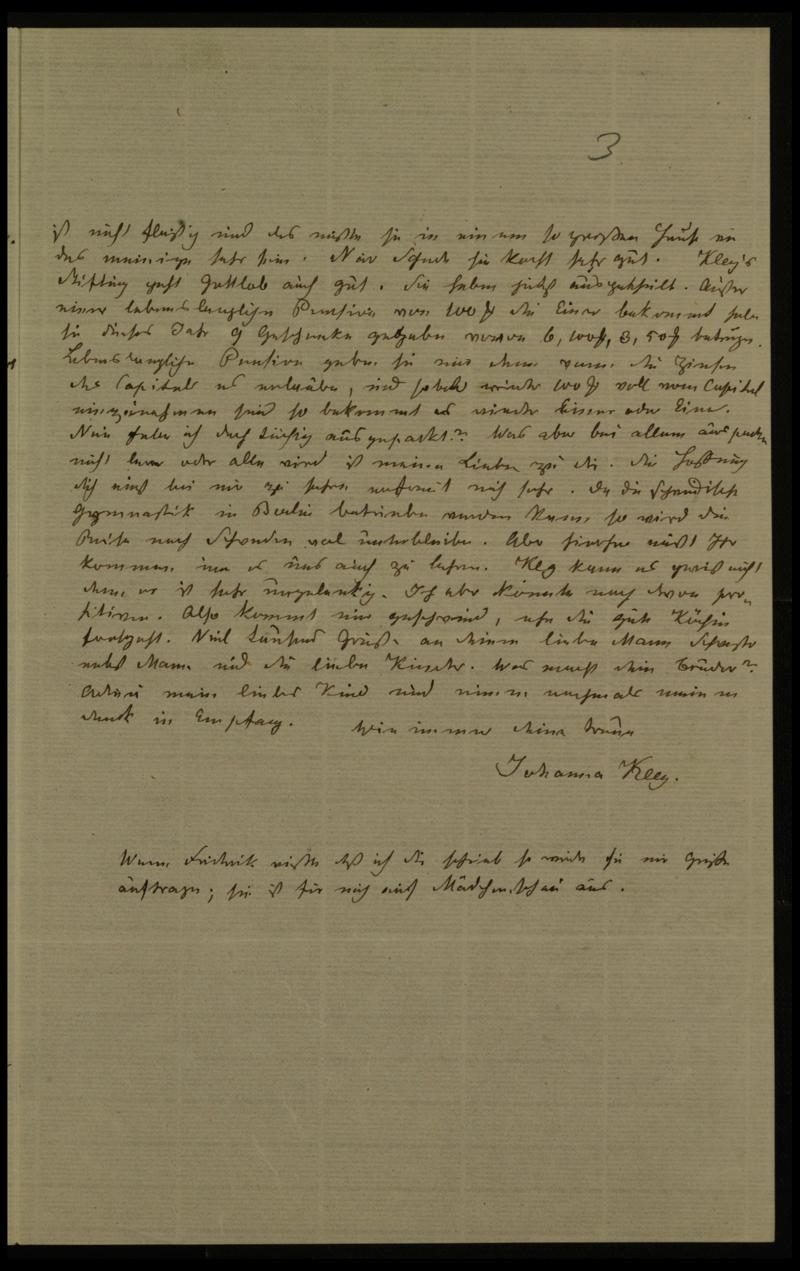 3
ist nicht fleißig und das müßte sie in einem so großen Hause wie
das meinige sehr sein. Nur Schade sie kocht sehr gut. Kley's
Stiftung geht Gottlob auch gut. Sie haben jetzt ausgetheilt. Außer
einer lebenslänglichen Pension von 100 die Einer bekommt haben
sie dieses Jahr 9 Geschenke gegeben wovon 6, 100, 3, 50 betrugen.
Lebenslängliche Pension geben sie nur denn wenn die Zinsen
des Capitals es erlauben, und sobald wieder 100 voll vom Capital
einzunehmen sind so bekommt es wieder Einer oder Eine.
Nun habe ich doch tüchtig ausgepackt? Was aber bei allem auspacken
nicht leer oder alle wird ist meine Liebe zu dir. Die Hoffnung
dich einst bei mir zu sehen erfreut mich sehr. Da die schwedische
Gymnastik in Berlin betrieben werden kann so wird die
Reise nach Schweden wol unterbleiben. Aber hierher müßt Ihr
kommen um es uns auch zu lehren. Kley kann es gewiß nicht
denn er ist sehr ungelenkig. Ich aber könnte noch davon pro-
fitiren. Also kommt nur geschwind, ehe die gute Köchin
fortgeht. Viel tausend Grüße an deinen lieben Mann Schwester
nebst Mann und die lieben Kinder. Was macht dein Bruder?
Adieu mein liebes Kind und nimm nochmals meinen
Dank in Empfang. Wie immer deine treue
Johanna Kley.
Wenn Friedrik wüßte daß ich dir schrieb so würde sie mir Grüße
auftragen; sie ist für mich auf Mädchenschau aus.